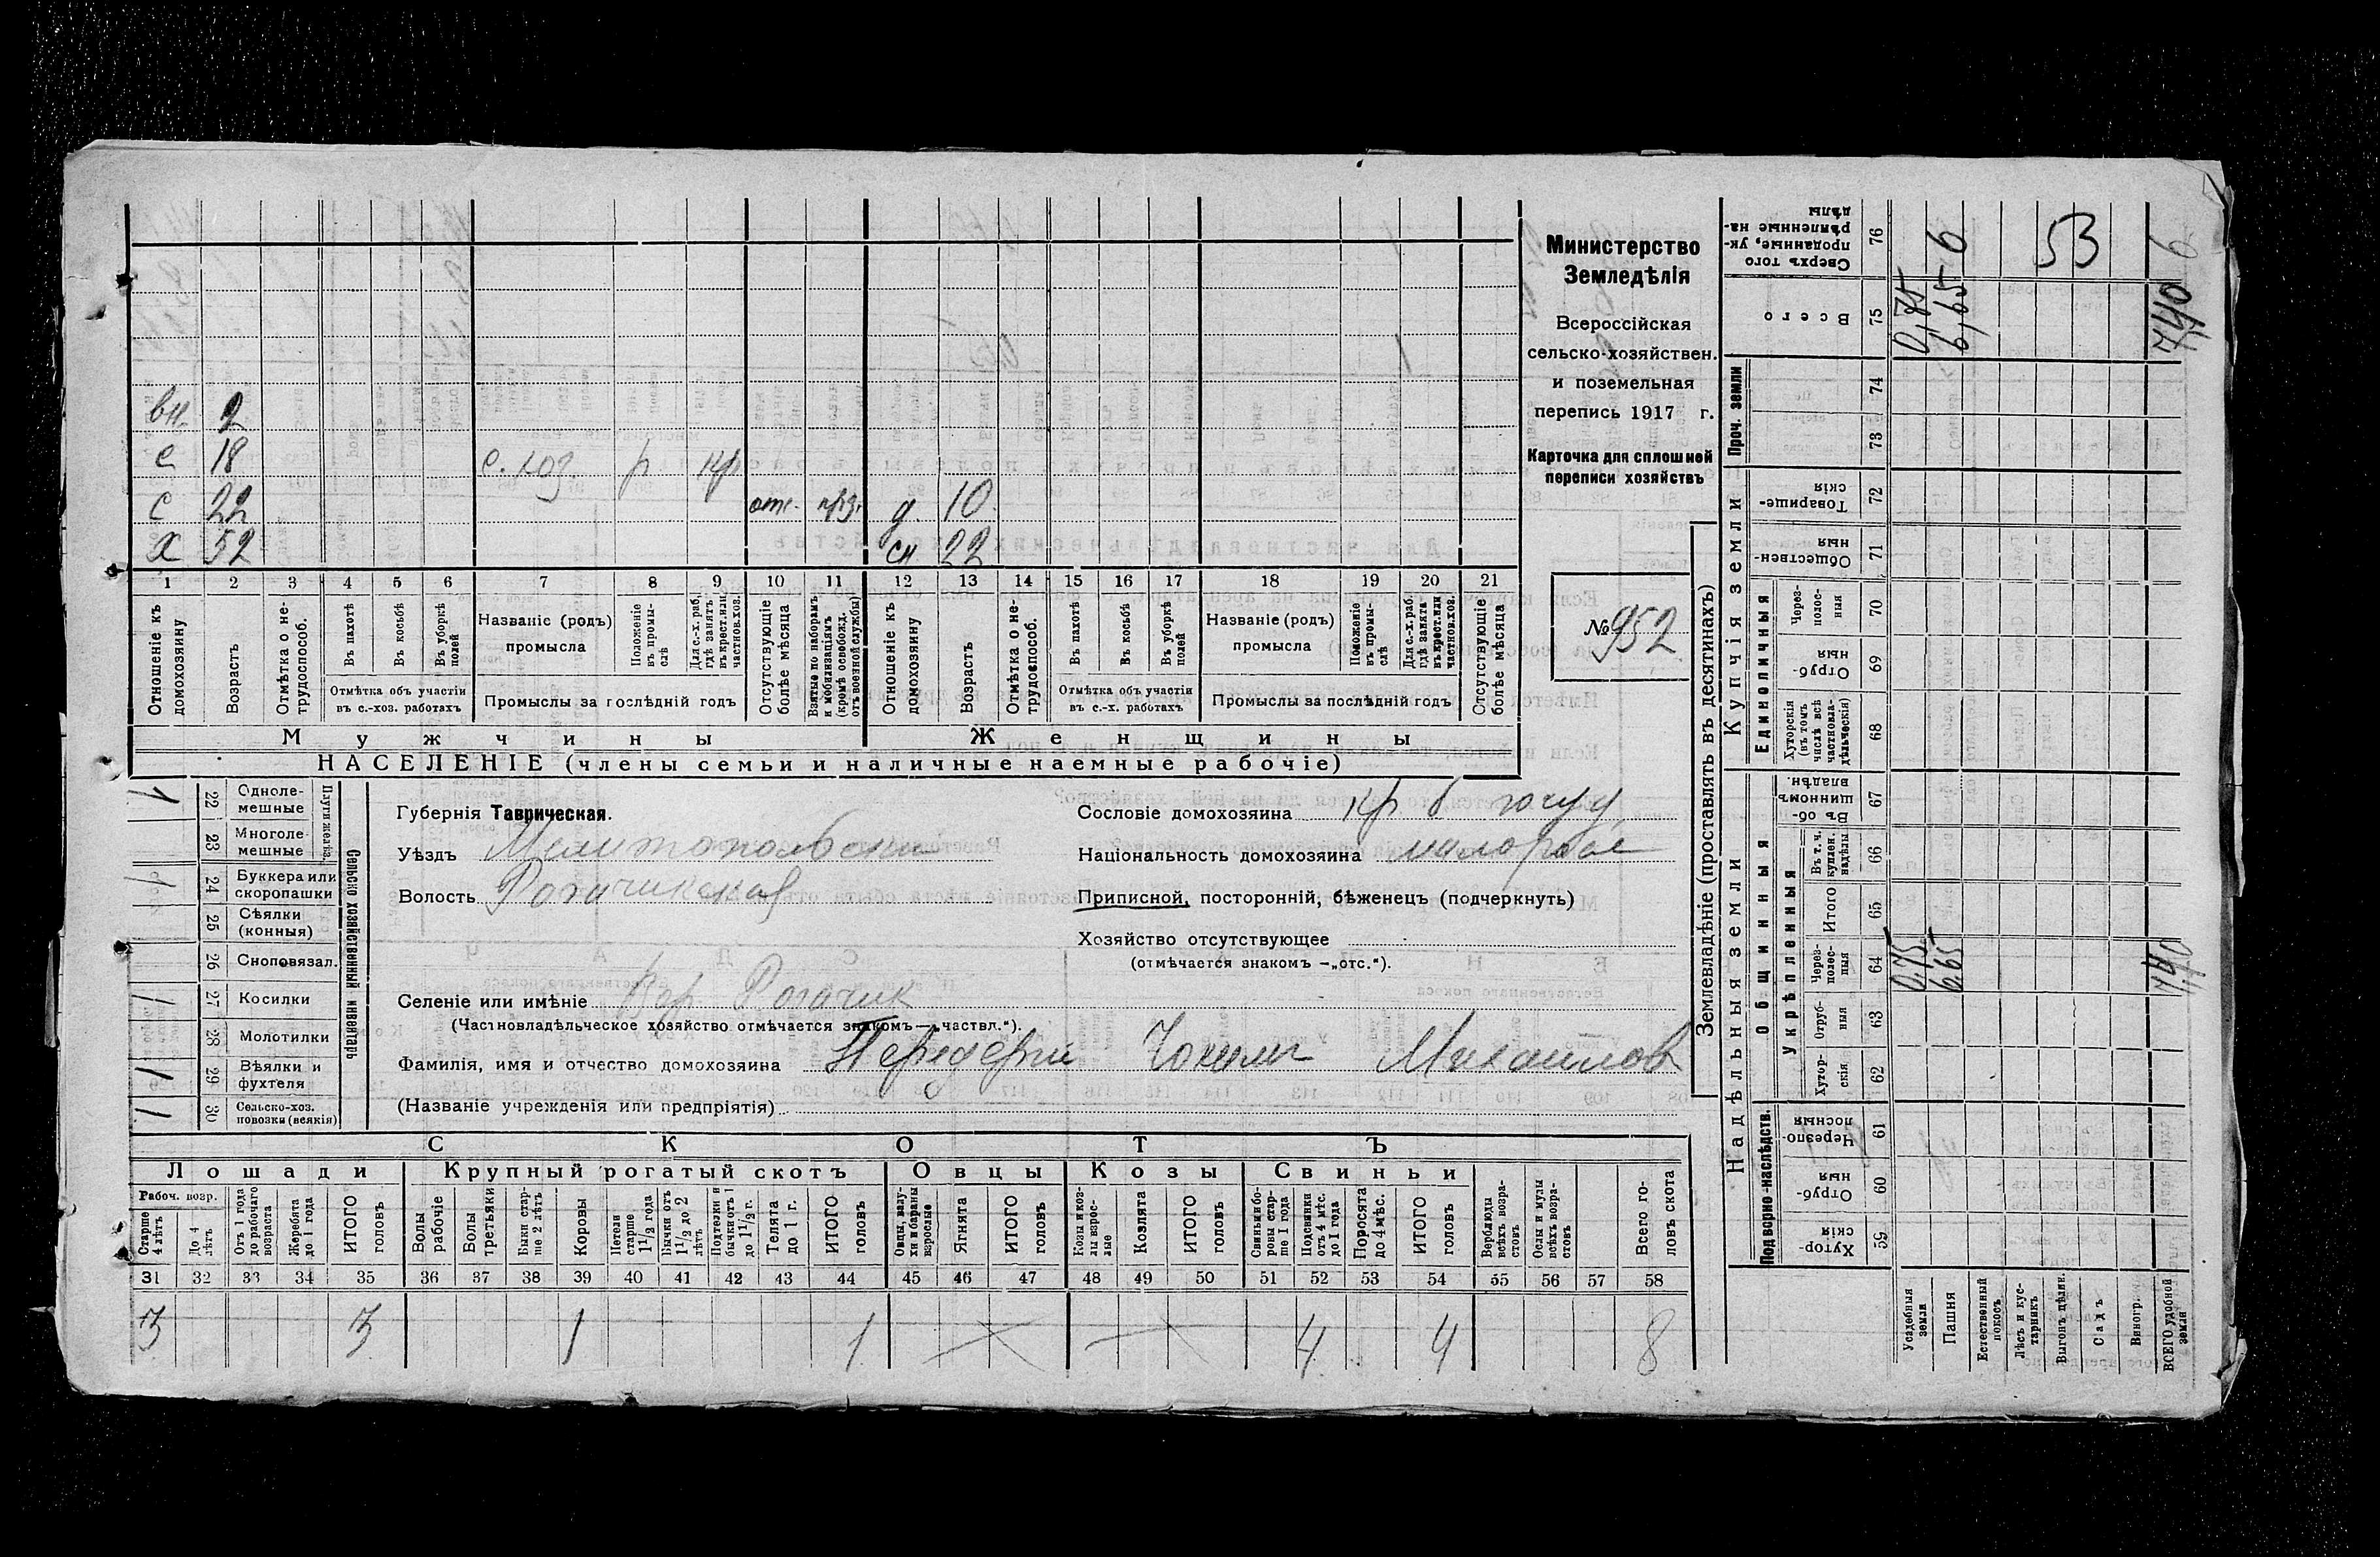 Министерство
Земледѣлія
Всероссійская
сельско-хозяйствен.
и поземельная
перепись 1917 г.
Карточка для сплошной
переписи хозяйствъ
№ 952
вн. 2
с 18 с. хоз р кр
с 22 отс. прз. д. 10
х 52 сн. 22
1 2 3 4 5 6 7 8 9 10 11 12 13 14 15 16 17 18 19 20 21
Отношеніе къ домохозяину
Возрастъ
Отмѣтка о нетрудоспособ.
Въ пахотѣ
Въ косьбѣ
Въ уборкѣ полей
Отмѣтка объ участіи въ с.-хоз. работахъ
Названіе (родъ) промысла
Положеніе въ промыслѣ
Для с.-х. раб., гдѣ занятъ въ крест. или частнов. хоз.
Промыслы за послѣдній годъ
Отсутствующіе болѣе мѣсяца
Взятые по наборамъ и мобилизаціямъ (кромѣ освобожд. отъ военной службы)
Отношеніе къ домохозяину
Возрастъ
Отмѣтка о нетрудоспособ.
Въ пахотѣ
Въ косьбѣ
Въ уборкѣ полей
Отмѣтка объ участіи въ с.-х. работахъ
Названіе (родъ) промысла
Положеніе въ промыслѣ
Для с.-х. раб. гдѣ занята въ крест. или частнов. хоз.
Промыслы за послѣдній годъ
Отсутствующіе болѣе мѣсяца
Мужчины Женщины
НАСЕЛЕНІЕ (члены семьи и наличные наемные рабочіе)
Сельско хозяйственный инвентарь
Плуги желѣз.
1 22 Однолемешные
23 Многолемешные
1 24 Буккера или скоропашки
25 Сѣялки (конныя)
26 Сноповязал.
1 27 Косилки
28 Молотилки
1 29 Вѣялки и фухтеля
1 30 Сельско-хоз. повозки (всякія)
Губернія Таврическая.
Уѣздъ Мелитопольскій
Волость Рогачикская
Селеніе или имѣніе Вер. Рогачик
(Частновладѣльческое хозяйство отмѣчается знакомъ—„частвл.“).
Фамилія, имя и отчество домохозяина Передерій Михаилов
(Названіе учрежденія или предпріятія)
Сословіе домохозяина кр. б.
Національность домохозяина малоросс
Приписной, посторонній, бѣженецъ (подчеркнуть)
Хозяйство отсутствующее
(отмѣчается знакомъ —„отс.“).
СКОТЪ
Лошади Крупный рогатый скотъ Овцы Козы Свиньи
Рабоч. возр.
Старше 4 лѣтъ
До 4 лѣтъ
Отъ 1 года до рабочаго возраста
Жеребята до 1 года
ИТОГО головъ
Волы рабочіе
Волы третьяки
Быки старше 2 лѣтъ
Коровы
Нетели старше 1½ года
Бычки отъ 1½ до 2 лѣтъ
Подтелки и бычки отъ 1 до 1½ г.
Телята до 1 г.
ИТОГО головъ
Овцы, валухи и бараны взрослые
Ягнята
ИТОГО головъ
Козы и козлы взрослые
Козлята
ИТОГО головъ
Свиньи и боровы старше 1 года
Подсвинки отъ 4 мѣс. до 1 года
Поросята до 4 мѣс.
ИТОГО головъ
Верблюды всѣхъ возрастовъ
Ослы и мулы всѣхъ возрастовъ
Всего головъ скота
31 32 33 34 35 36 37 38 39 40 41 42 43 44 45 46 47 48 49 50 51 52 53 54 55 56 57 58
3 3 1 1 4 4 8
Землевладѣніе (проставлять въ десятинахъ)
Надѣльныя земли Купчія земли Проч. земли
Подворно-наслѣдств.
Общинныя
Укрѣпленныя
Единоличныя
Хуторскія 59
Отрубныя 60
Черезполосныя 61
Хуторскія 62
Отрубныя 63
Черезполосныя 64 0,75 6,65 7,40
Итого 65
Въ т. ч. куплен. надѣлы 66
Въ общинномъ владѣн. 67
Хуторскія (въ томъ числѣ всѣ частновладѣльческія) 68
Отрубныя 69
Черезполосныя 70
Общественныя 71
Товарищескія 72
73
74
Всего 75 0,75 6,65 7,40
Сверхъ того проданные, укрѣпленные надѣлы 76 6 53 6
Усадебныя земли
Пашня
Естественный покосъ
Лѣсъ и кустарникъ
Выгонъ цѣлин.
Садъ
Виногр.
ВСЕГО удобной земли